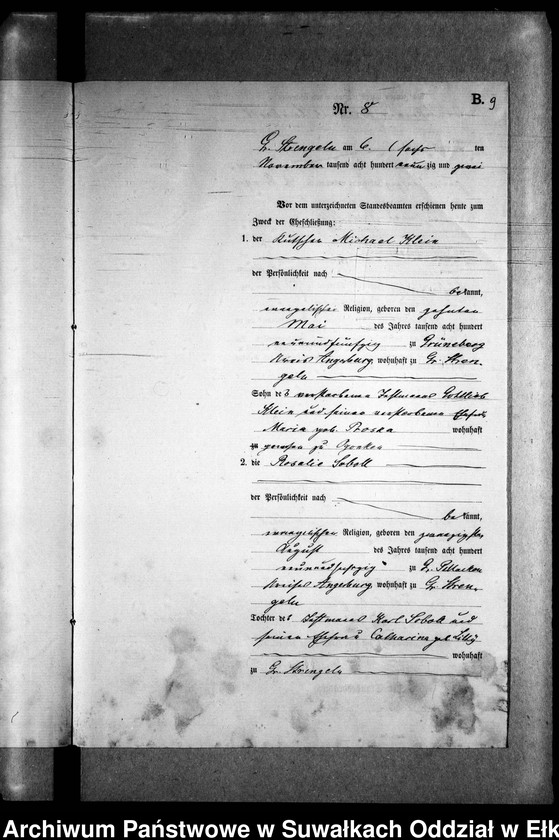 B. 9
Nr. 8
Gr. Strengeln am 6. (sechs ten
November tausend acht hundert neunzig und zwei
Vor dem unterzeichneten Standesbeamten erschienen heute zum
Zweck der Eheschließung:
1. der Kutscher Michael Klein
der Persönlichkeit nach
bekannt,
evangelischer Religion, geboren den zehnten
Mai des Jahres tausend acht hundert
neunundfünfzig zu Grüneberg
Kreis Angerburg, wohnhaft zu Gr. Stren-
geln
Sohn des verstorbenen Instmanns Gottlieb
Klein und seiner verstorbenen Ehefrau
Maria geb. wohnhaft
zu gewesen zu
2. die Rosalie Sobott
der Persönlichkeit nach
bekannt,
evangelischer Religion, geboren den zwanzigsten
August des Jahres tausend acht hundert
neunundsechzig zu Gr.
Kreises Angerburg, wohnhaft zu Gr. Stren-
geln
Tochter des Instmanns Karl Sobott und
seiner Ehefrau Catharina geb.
wohnhaft
zu Gr. Strengeln
Archiwum Państwowe w Suwałkach Oddział w Ełk